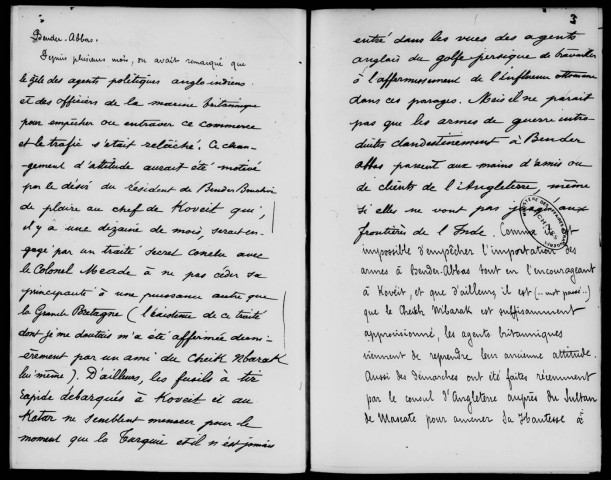 Bender-Abbas.
Depuis plusieurs mois, on avait remarqué que
le zèle des agents politiques anglo-indiens
et des officiers de la marine britannique
pour empêcher ou entraver ce commerce
et le trafic s'était relâché. Ce chan-
gement d'attitude aurait été motivé
par le désir du Résident de Bender-Bouchir
de plaire au chef de Koveit qui,
il y a une dizaine de mois, serait en-
gagé par un traité secret conclu avec
le Colonel Meade à ne pas céder sa
principauté à une puissance autre que
la Grande Bretagne (l'existence de ce traité
dont je me doutais m'a été affirmée derni-
èrement par un ami du Cheik Mbarak
lui-même). D'ailleurs, les fusils à tir
rapide débarqués à Koveit et au
Katar ne semblent menacer pour le
moment que la Turquie et il n'est jamais
3
entré dans les vues des agents
anglais du golfe persique de travailler
à l'affermissement de l'influence ottomane
dans ces parages. Mais il ne parait
pas que les armes de guerre intro-
duites clandestinement à Bender
Abbas passent aux mains d'amis ou
de clients de l'Angleterre, même
si elles ne vont pas jusqu'aux
frontières de l'Inde. Comme il est
impossible d'empêcher l'importation des
armes à Bender-Abbas tout en l'encourageant
à Koveit, et que d'ailleurs, il est (.. mot passé ..)
que le Cheikh Mbarak est suffisamment
approvisionné, les agents britanniques
viennent de reprendre leur ancienne attitude.
Aussi des démarches ont été faites récemment
par le consul d'Angleterre auprès du Sultan
de Mascate pour amener Sa Hautesse à
MINISTÈRE DES AFFAIRES
ARCHIVES